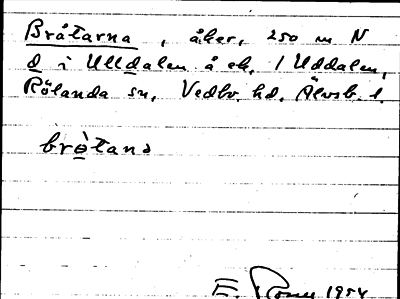 Bråtarna, åker, 250 m N
d i Ulldalen å ek. 1 Uddalen,
Rölanda sn, Vedbo hd. Älvsb. l.
bròtana
E. 1954